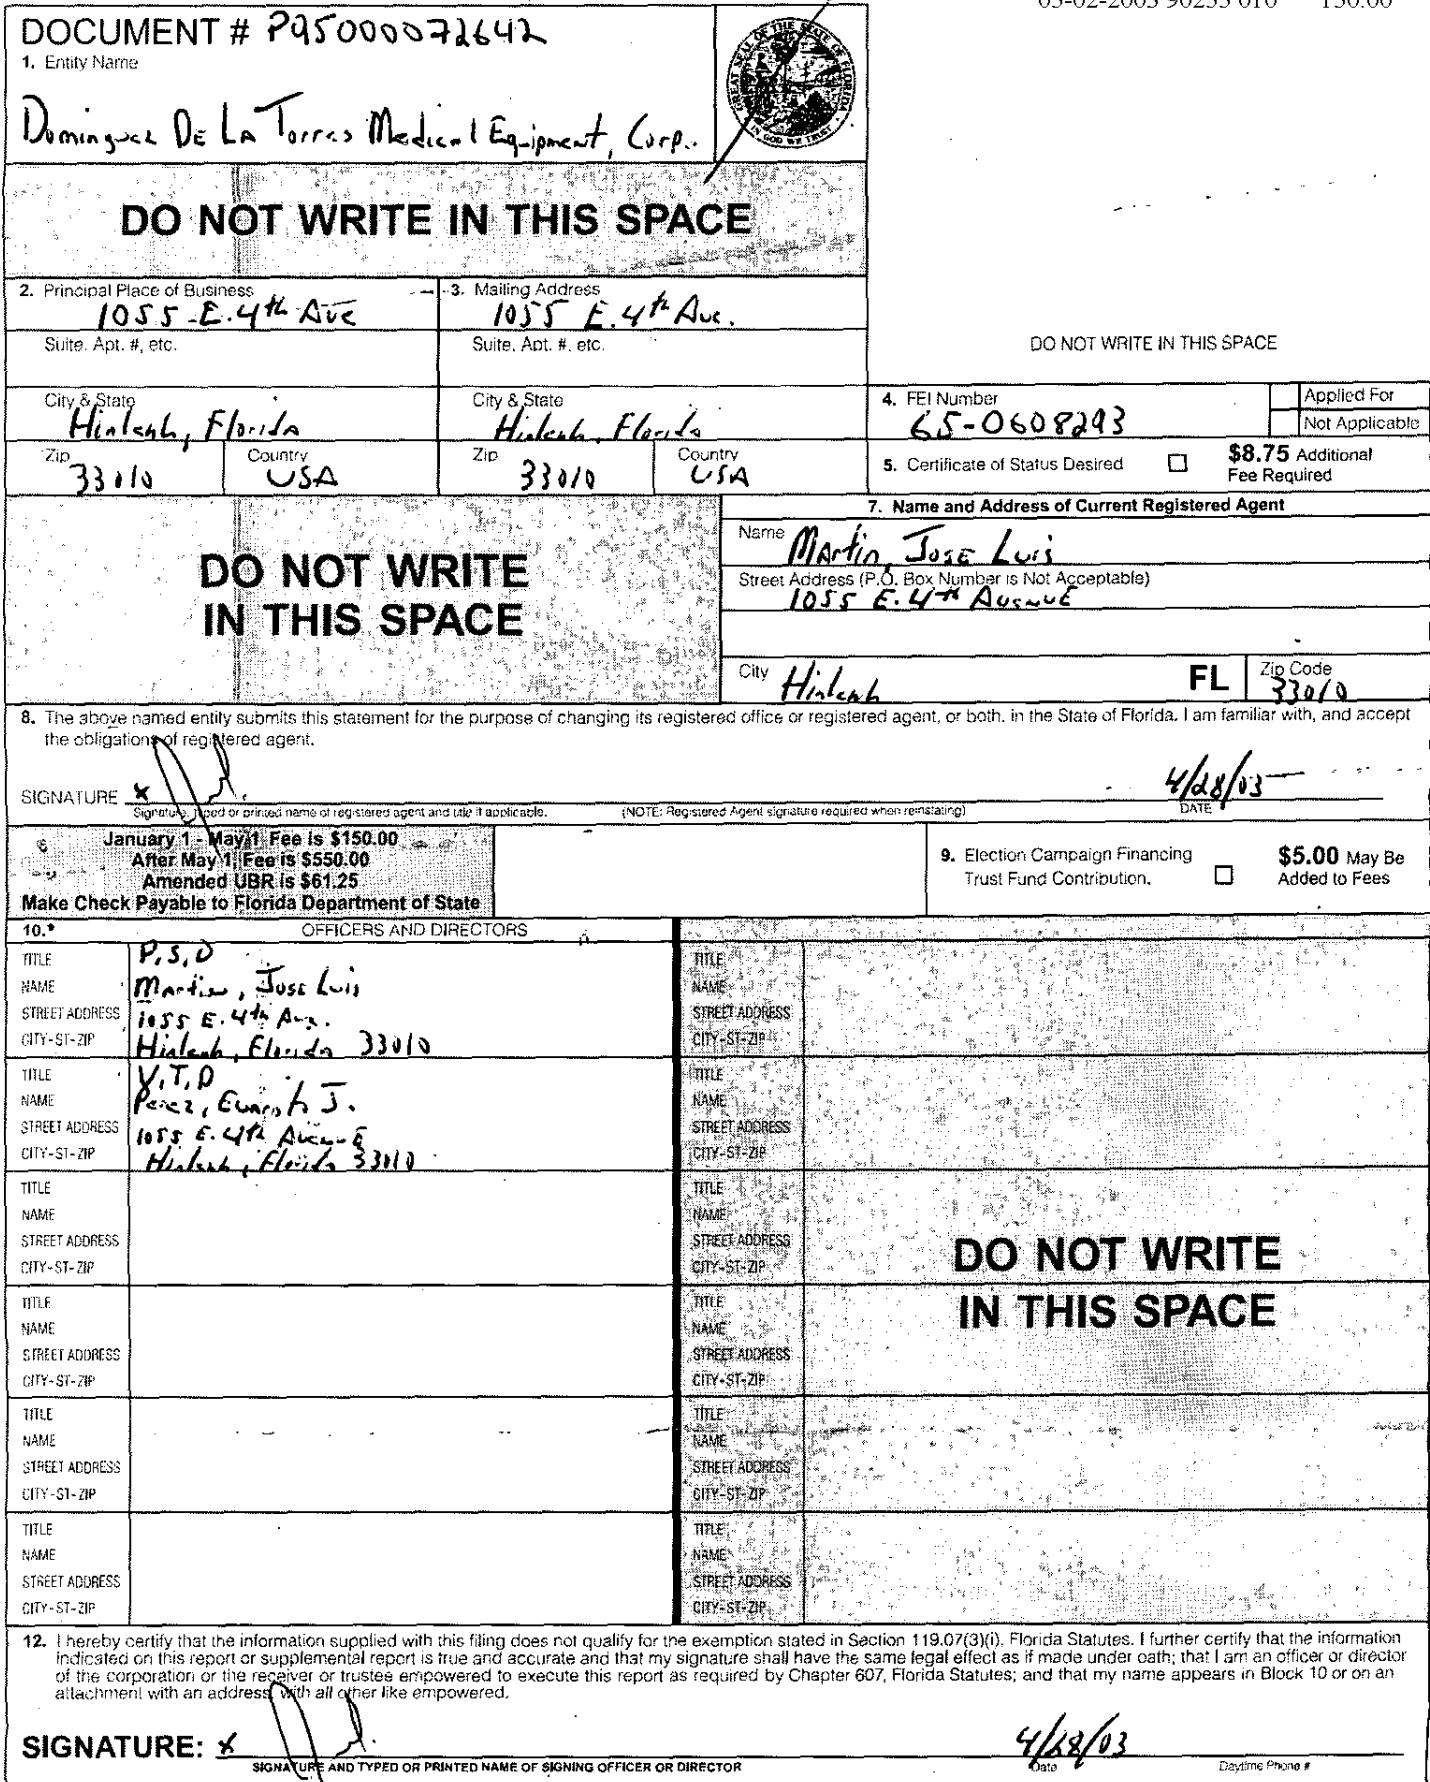 05-02-2003 90255 010 150.00
DOCUMENT # P95000072642
1. Entity Name
Dominguez DE LA Torres Medical Equipment, Corp.
GREAT SEAL OF THE STATE OF FLORIDA
IN GOD WE TRUST
DO NOT WRITE IN THIS SPACE
2. Principal Place of Business
1055 E. 4th Ave
3. Mailing Address
1055 E. 4th Ave.
Suite, Apt. #, etc.
Suite, Apt. #, etc.
DO NOT WRITE IN THIS SPACE
City & State
Hialeah, Florida
City & State
Hialeah, Florida
4. FEI Number
65-0608293
Applied For
Not Applicable
Zip
33010
Country
USA
Zip
33010
Country
USA
5. Certificate of Status Desired
$8.75 Additional
Fee Required
DO NOT WRITE
IN THIS SPACE
7. Name and Address of Current Registered Agent
Name Martin, Jose Luis
Street Address (P.O. Box Number is Not Acceptable)
1055 E. 4th AvenuE
City Hialeah FL Zip Code
33010
8. The above named entity submits this statement for the purpose of changing its registered office or registered agent, or both, in the State of Florida. I am familiar with, and accept
the obligations of registered agent.
SIGNATURE x
4/28/03
Signature, typed or printed name of registered agent and title if applicable. (NOTE: Registered Agent signature required when reinstating) DATE
January 1 - May 1 Fee is $150.00
After May 1, Fee is $550.00
Amended UBR is $61.25
Make Check Payable to Florida Department of State
9. Election Campaign Financing
Trust Fund Contribution.
$5.00 May Be
Added to Fees
10. OFFICERS AND DIRECTORS
TITLE P,S,D
NAME Martin, Jose Luis
STREET ADDRESS 1055 E. 4th Ave.
CITY-ST-ZIP Hialeah, Florida 33010
TITLE V,T,D
NAME Perez, Evaristo J.
STREET ADDRESS 1055 E. 4th AvenuE
CITY-ST-ZIP Hialeah, Florida 33010
TITLE
NAME
STREET ADDRESS
CITY-ST-ZIP
TITLE
NAME
STREET ADDRESS
CITY-ST-ZIP
TITLE
NAME
STREET ADDRESS
CITY-ST-ZIP
TITLE
NAME
STREET ADDRESS
CITY-ST-ZIP
TITLE
NAME
STREET ADDRESS
CITY-ST-ZIP
TITLE
NAME
STREET ADDRESS
CITY-ST-ZIP
TITLE
NAME
STREET ADDRESS
CITY-ST-ZIP
DO NOT WRITE
IN THIS SPACE
TITLE
NAME
STREET ADDRESS
CITY-ST-ZIP
TITLE
NAME
STREET ADDRESS
CITY-ST-ZIP
TITLE
NAME
STREET ADDRESS
CITY-ST-ZIP
12. I hereby certify that the information supplied with this filing does not qualify for the exemption stated in Section 119.07(3)(i), Florida Statutes. I further certify that the information
indicated on this report or supplemental report is true and accurate and that my signature shall have the same legal effect as if made under oath; that I am an officer or director
of the corporation or the receiver or trustee empowered to execute this report as required by Chapter 607, Florida Statutes; and that my name appears in Block 10 or on an
attachment with an address, with all other like empowered.
SIGNATURE: x
4/28/03
SIGNATURE AND TYPED OR PRINTED NAME OF SIGNING OFFICER OR DIRECTOR Date Daytime Phone #